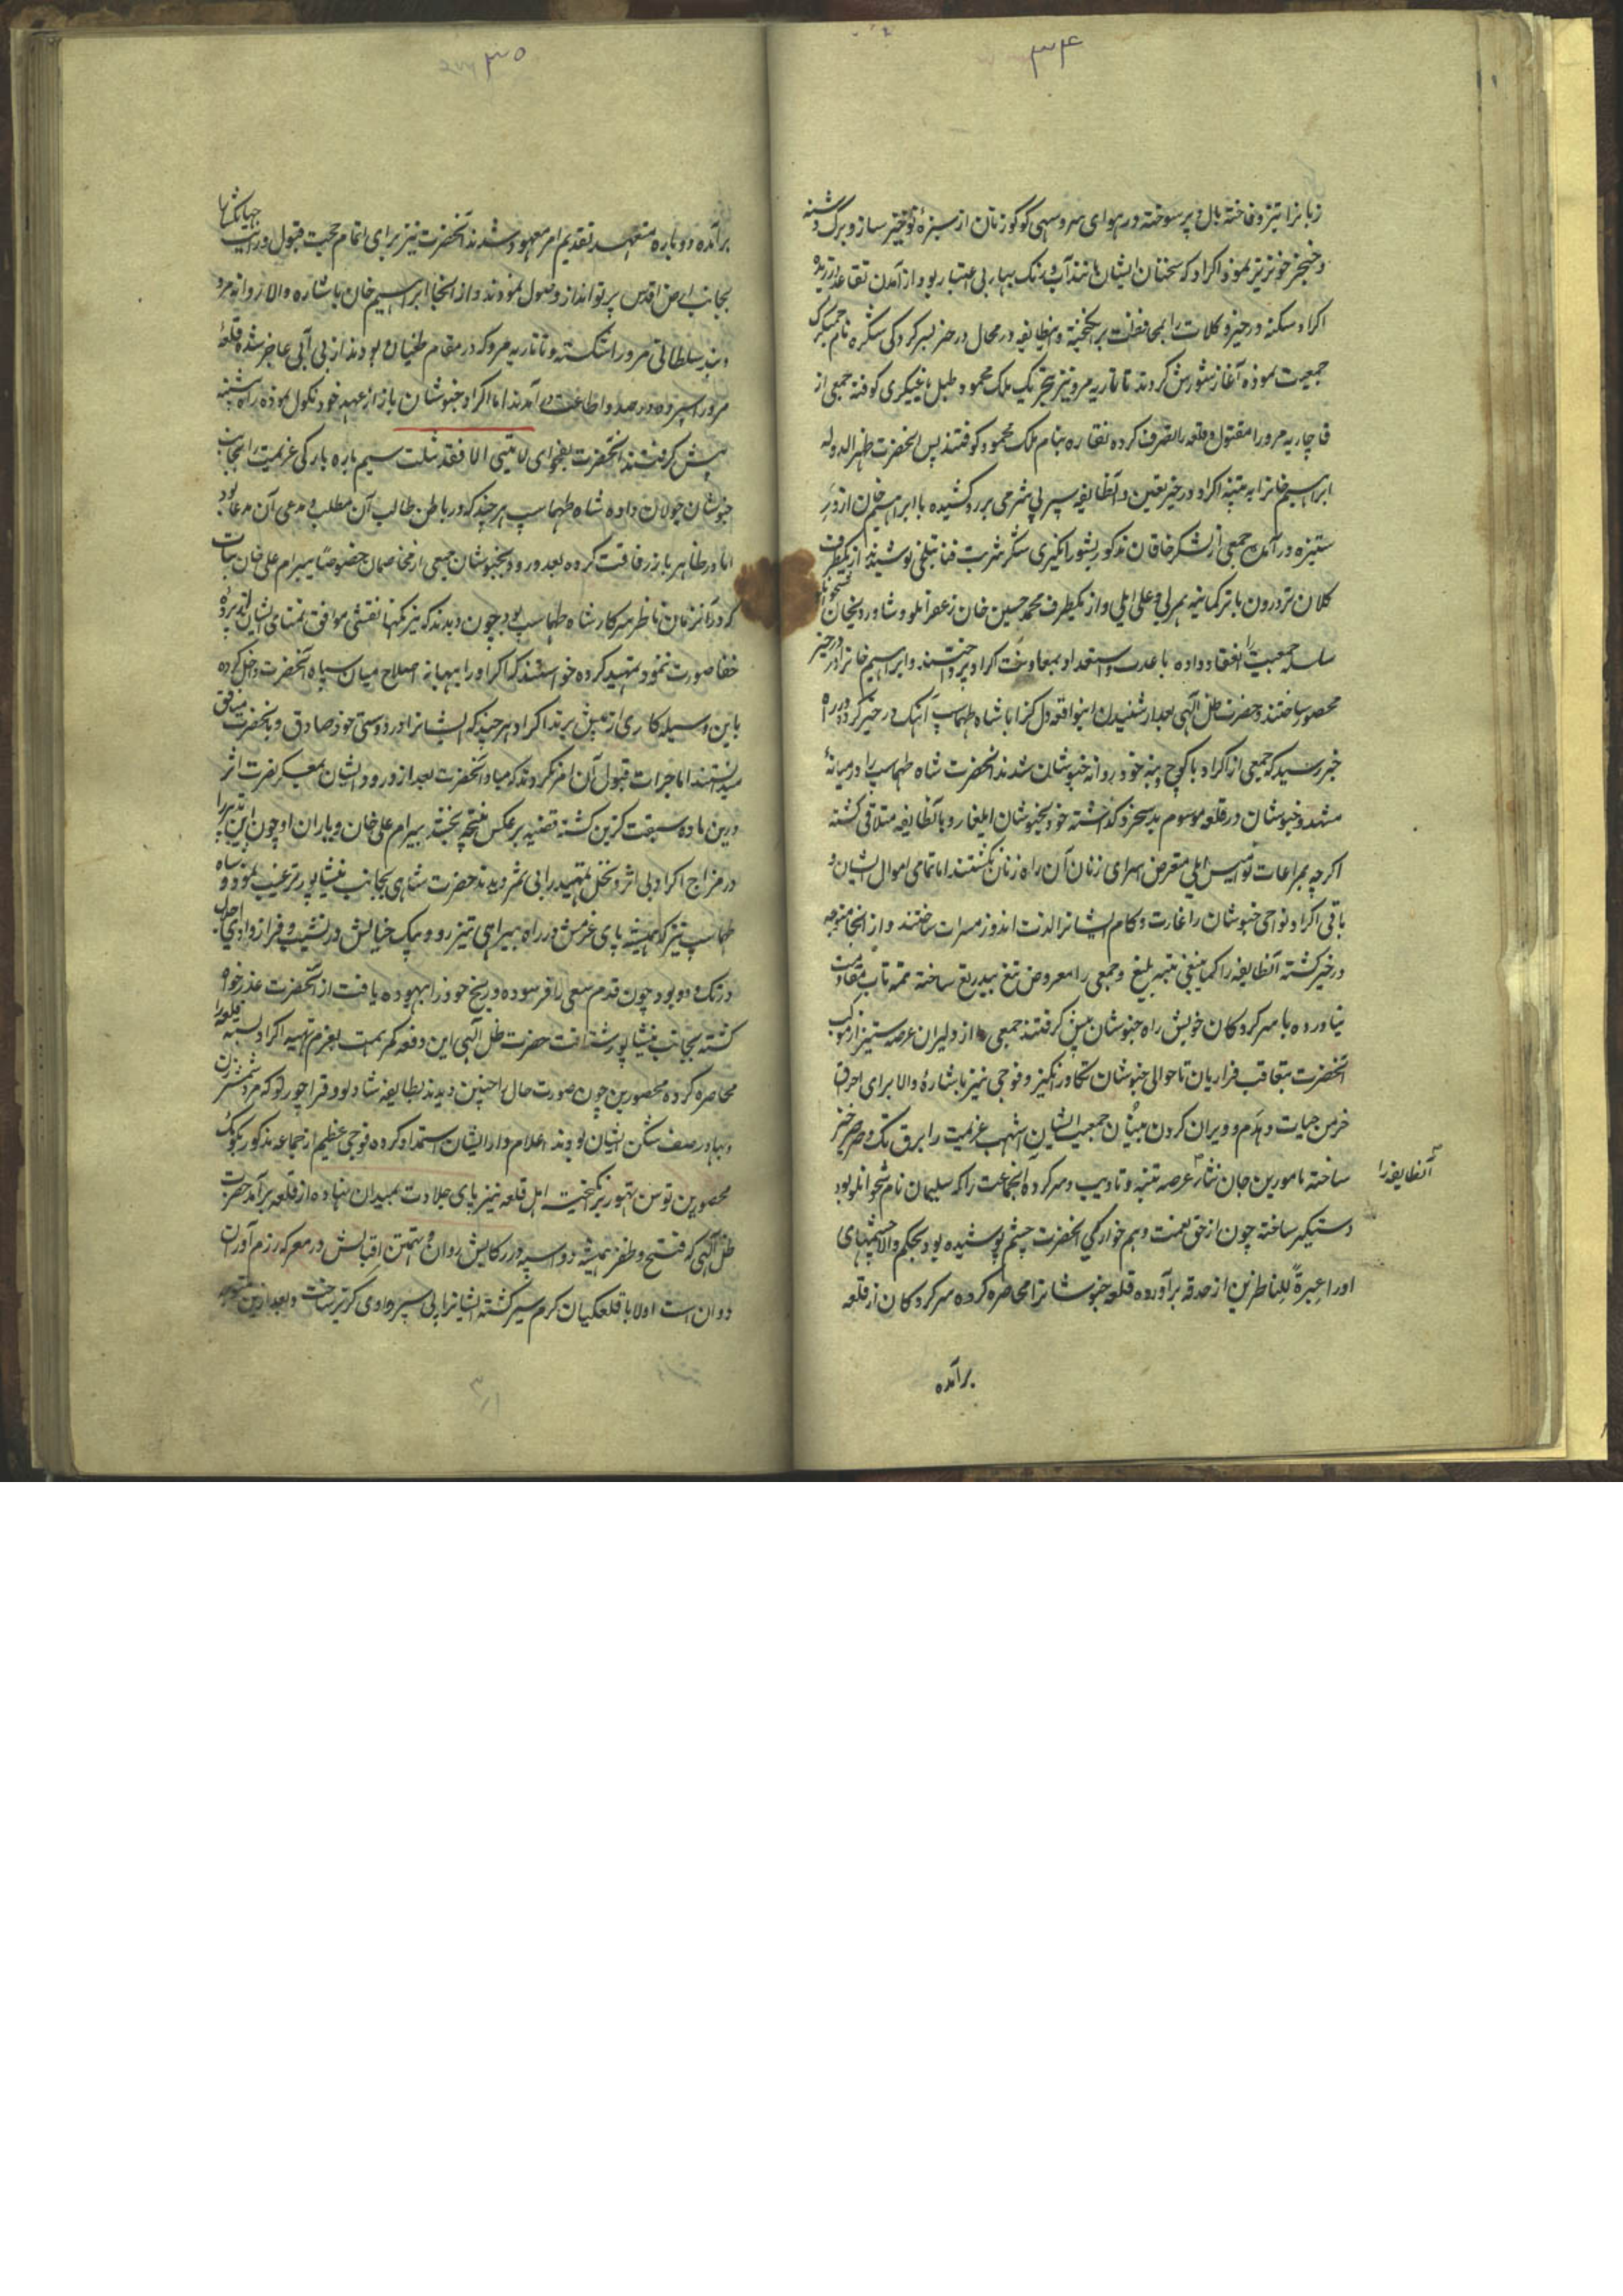 ۳۴
زبانرا تیز و فاخته بال و پر سوخته در هوای سرو سهی کوکو زنان از سبزهٔ نوخیز ساز و برک دشنه
و خنجر خونریز تیز نمود اکراد که سخنان ایشان مانند آب و رنک بهار بی اعتبار بود از آمدن تقاعد ورزیده
اکراد سکنه درجز و کلات را بمحافظت برانکیخته و انطایفه در محال درجز بسرکردکی شکره نام جمیشکزک
جمعیت نموده آغاز شورش کردند تاتاریه مرو نیز بتحریک ملک محمود طبل یاغیکری کوفته جمعی از
قاجاریه مرو را مقتول و قلعه را تصرف کرده نقاره بنام ملک محمود کوفتند پس آنحضرت ظهیرالدوله
ابراهیم خانرا به تنبیه اکراد درجز تعیین و آنطایفه سپر بی شرمی بر رو کشیده با ابراهیم خان از در
ستیزه درآمده جمعی از لشکر خاقان مذکور بشور انکیزی شکر شربت فنا بتلخی نوشیدند از یکطرف
کلان تر درون با ترکمانیه یمرلی و علی ایلی و از یکطرف محمد حسین خان زعفرانلو و شاوردیخان
سلسله جمعیت را انعقاد داده با عدت و استعداد بمعاونت اکراد پرداختند و ابراهیم خانرا در درجز
محصور ساختند و حضرت ظل الهی بعد از شنیدن اینواقعه دل کزا با شاه طهماسب آهنک درجز کرده در راه
خبر رسید که جمعی از اکراد با کوچ و بنه خود روانه خبوشان شدند آنحضرت شاه طهماسب را در میانهٔ
مشهد و خبوشان در قلعه موسوم به کذاشته خود بخبوشان ایلغار و با آنطایفه متلاقی کشته
اکرچه بمراعات نوامیس ایلی متعرض اسرای زنان آن راه زنان نکشتند اما تمامی اموال ایشان و
باقی اکراد نواحی خبوشان را غارت و کام ایشانرا لذت اندوز مسرات ساختند و از آنجا متوجه
درجز کشته آنطایفه را کما ینبغی تنبیه بلیغ و جمعی را معروض تیغ بیدریغ ساخته تتمه تاب مقاومت
نیاورده با سرکردکان خویش راه خبوشان پیش کرفتند جمعی از دلیران عرصه ستیز از موکب
آنحضرت متعاقب فراریان تا حوالی خبوشان تکاور انکیز و فوجی نیز باشارهٔ والا برای احراق
خرمن حیات و هدم و ویران کردن بنیان جمعیت ایشان اشهب عزیمت را برق تک و صرصر خیز
آنطایفه را
ساخته مامورین جان نثار عرصه تنبیه و تادیب و سرکرده آنجماعت را که سلیمان نام شیخوانلو بود
دستکیر ساخته چون از حق نعمت و هم خوارکی آنحضرت چشم پوشیده بود بحکم والا چشمهای
او را عبرة للناظرین از حدقه برآورده قلعه خبوشانرا محاصره کرده سرکردکان از قلعه
برآمده
۳۵
برآمده دوباره متعهد تقدیم امر معهود شدند آنحضرت نیز برای اتمام حجت قبول و رایت جهانکشا
بجانب ارض اقدس پرتو انداز وصول نمودند و از آنجا ابراهیم خان باشاره والا روانه مرو
و بند سلطانی مرو را شکسته و تاتاریه مرو که در مقام طغیان بودند از بی آبی عاجز شده قلعهٔ
مرو را سپرده در صدد اطاعت درآمدند اما اکراد خبوشان باز از عهد خود نکول نموده راه شنیعه
پیش کرفتند آنحضرت بفحوای لا تثنی الا فقد ثلث سیم باره بارکی عزیمت را بجانب
خبوشان جولان داده شاه طهماسب هر چند که در باطن طالب آن مطلب و مدعی آن مدعا بود
اما در ظاهر باز رفاقت کرده بعد ورود بخبوشان جمعی از مخاصمان خصوصا بیرام علی خان بیات
که در آنزمان ناظر سرکار شاه طهماسب بود چون دیدند که نیرنکها نقشی موافق تمنای ایشان از پردهٔ
خفا صورت ننمود تمهید کرده خواستند که اکراد را ببهانه اصلاح میان سپاه آنحضرت داخل کرده
باین وسیله کاری از پیش برند اکراد هر چند که ایشانرا در دوستی خود صادق و با آنحضرت منافق
میدانستند اما جرات قبول آن امر نکردند که مبادا آنحضرت بعد از ورود ایشان بمعسکر نصرت اثر
درین ماده سبقت کزین کشته قضیه بر عکس نتیجه بخشد بیرام علی خان و یاران او چون این تدبیر را
در مزاج اکراد بی اثر و نخل تمهید را بی ثمر دیدند حضرت شاهی بجانب نیشاپور ترغیب نمود و شاه
طهماسب نیز که همیشه پای عزمش در راه بیراهی تیز رو و پیک خیالش در نشیب و فراز وادی
در تک و دو بود چون قدم سعی را فرسوده و رنج خود را بیهوده یافت از آنحضرت عذر خواه
کشته بجانب نیشاپور شتافت حضرت ظل الهی این دفعه کمر همت بعزم تنبیه اکراد بسته قلعه را
محاصره کرده محصورین چون صورت حال را چنین دیدند بطایفه شادلو و قراچورلو که مرد شمشیرزن
و بهادر صف شکن ایشان بودند اعلام و از ایشان استمداد کرده فوجی عظیم از جماعه مذکور بکومک
محصورین توسن تهور برانکیخته اهل قلعه نیز پای جلادت بمیدان نهاده از قلعه برآمد حضرت
ظل الهی که فتح و ظفر همیشه دو اسپه در رکابش روان و تهمتن اقبالش در معرکه رزم آوران
دوان است اولا با قلعکیان کرم ستیز کشته ایشانرا پی سپر وادی کریز ساخت و بعد ازین متوجه